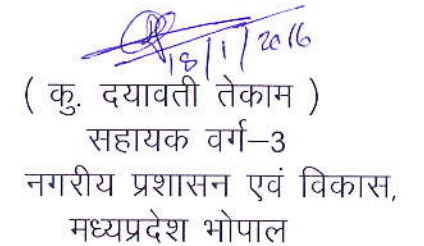 18/1/2016
( कु. दयावती तेकाम )
सहायक वर्ग–3
नगरीय प्रशासन एवं विकास,
मध्यप्रदेश भोपाल